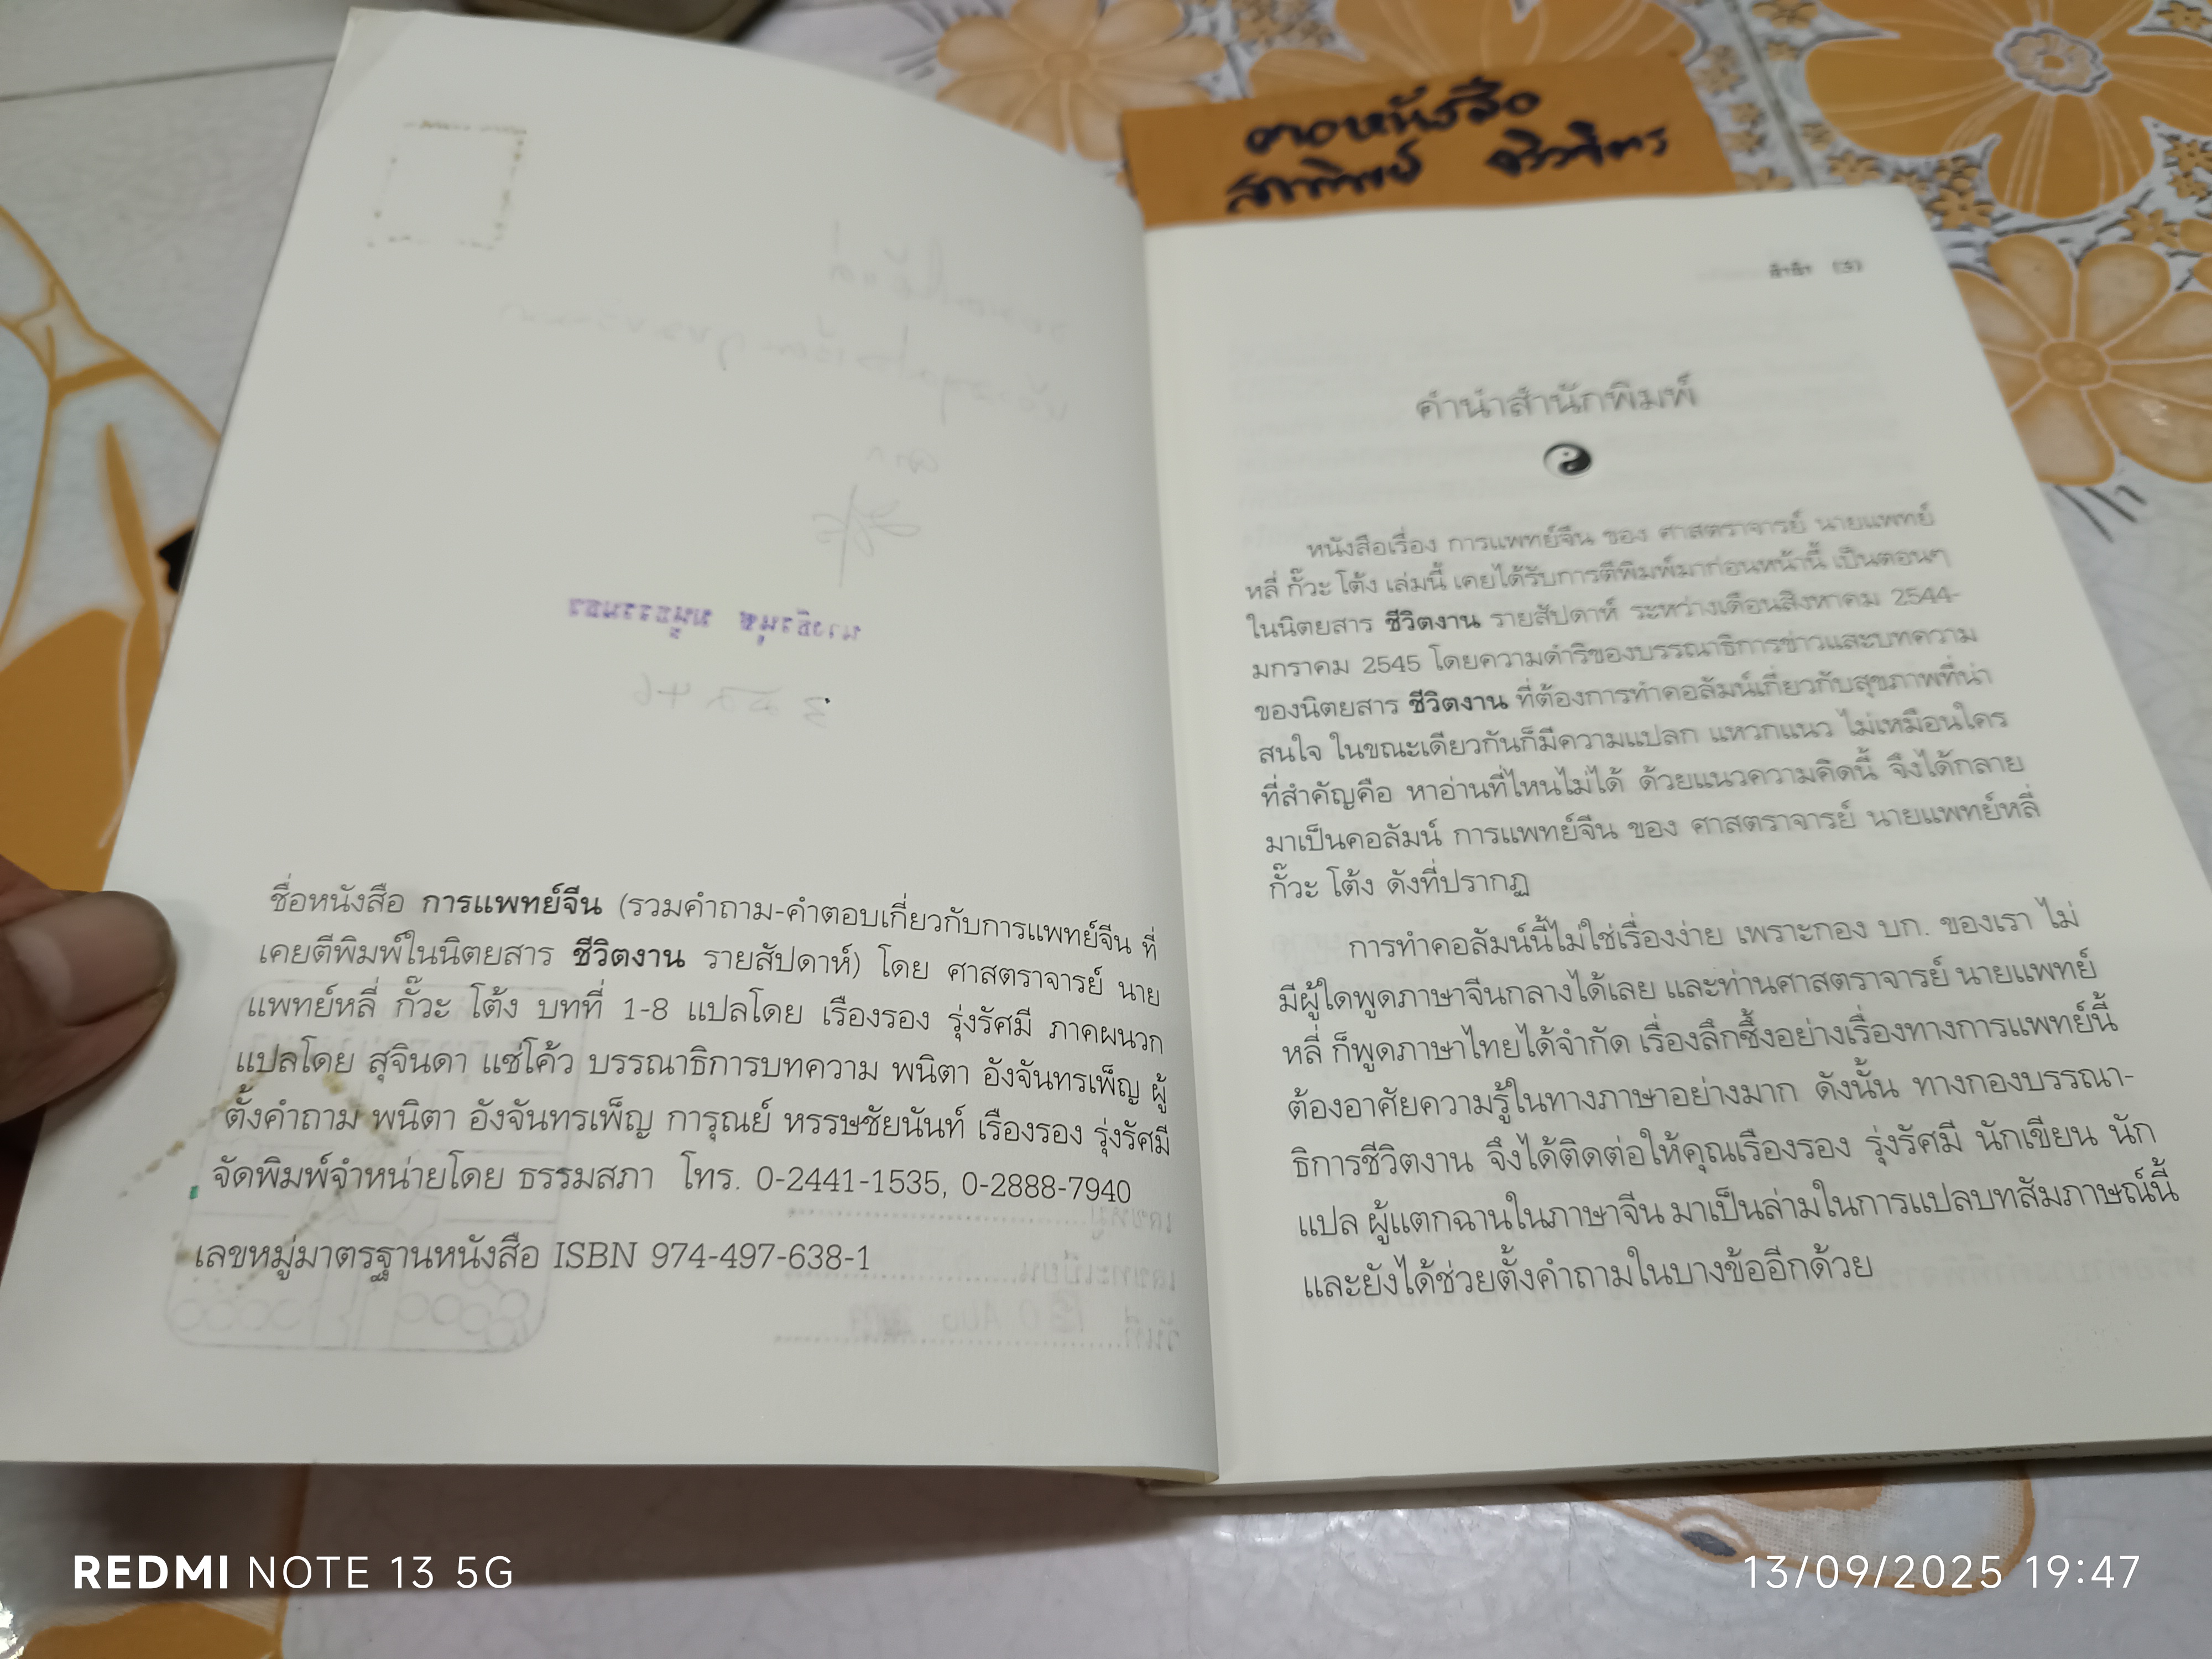 ชื่อหนังสือ การแพทย์จีน (รวมคำถาม-คำตอบเกี่ยวกับการแพทย์จีน ที่
เคยตีพิมพ์ในนิตยสาร ชีวิตงาน รายสัปดาห์) โดย ศาสตราจารย์ นาย
แพทย์หลี่ กั๊วะ โต้ง บทที่ 1-8 แปลโดย เรืองรอง รุ่งรัศมี ภาคผนวก
แปลโดย สุจินดา แซ่โค้ว บรรณาธิการบทความ พนิตา อังจันทรเพ็ญ ผู้
ตั้งคำถาม พนิตา อังจันทรเพ็ญ การุณย์ หรรษชัยนันท์ เรืองรอง รุ่งรัศมี
จัดพิมพ์จำหน่ายโดย ธรรมสภา โทร. 0-2441-1535, 0-2888-7940
เลขหมู่มาตรฐานหนังสือ ISBN 974-497-638-1
คำนำสำนักพิมพ์
หนังสือเรื่อง การแพทย์จีน ของ ศาสตราจารย์ นายแพทย์
หลี่ กั๊วะ โต้ง เล่มนี้ เคยได้รับการตีพิมพ์มาก่อนหน้านี้ เป็นตอนๆ
ในนิตยสาร ชีวิตงาน รายสัปดาห์ ระหว่างเดือนสิงหาคม 2544-
มกราคม 2545 โดยความดำริของบรรณาธิการข่าวและบทความ
ของนิตยสาร ชีวิตงาน ที่ต้องการทำคอลัมน์เกี่ยวกับสุขภาพที่น่า
สนใจ ในขณะเดียวกันก็มีความแปลก แหวกแนว ไม่เหมือนใคร
ที่สำคัญคือ หาอ่านที่ไหนไม่ได้ ด้วยแนวความคิดนี้ จึงได้กลาย
มาเป็นคอลัมน์ การแพทย์จีน ของ ศาสตราจารย์ นายแพทย์หลี่
กั๊วะ โต้ง ดังที่ปรากฏ
การทำคอลัมน์นี้ไม่ใช่เรื่องง่าย เพราะกอง บก. ของเรา ไม่
มีผู้ใดพูดภาษาจีนกลางได้เลย และท่านศาสตราจารย์ นายแพทย์
หลี่ ก็พูดภาษาไทยได้จำกัด เรื่องลึกซึ้งอย่างเรื่องทางการแพทย์นี้
ต้องอาศัยความรู้ในทางภาษาอย่างมาก ดังนั้น ทางกองบรรณา-
ธิการชีวิตงาน จึงได้ติดต่อให้คุณเรืองรอง รุ่งรัศมี นักเขียน นัก
แปล ผู้แตกฉานในภาษาจีน มาเป็นล่ามในการแปลบทสัมภาษณ์นี้
และยังได้ช่วยตั้งคำถามในบางข้ออีกด้วย
REDMI NOTE 13 5G
13/09/2025 19:47